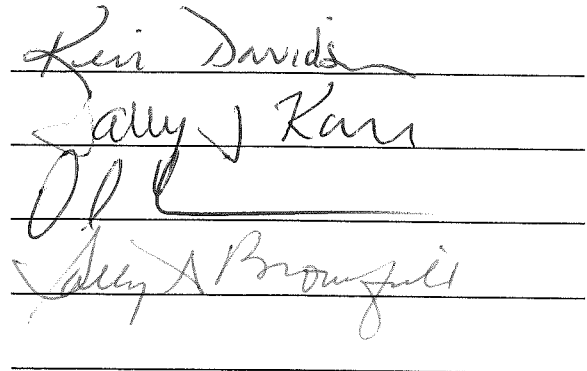 Kevin Davidson
Sally J Karr
Sally A Brownfield